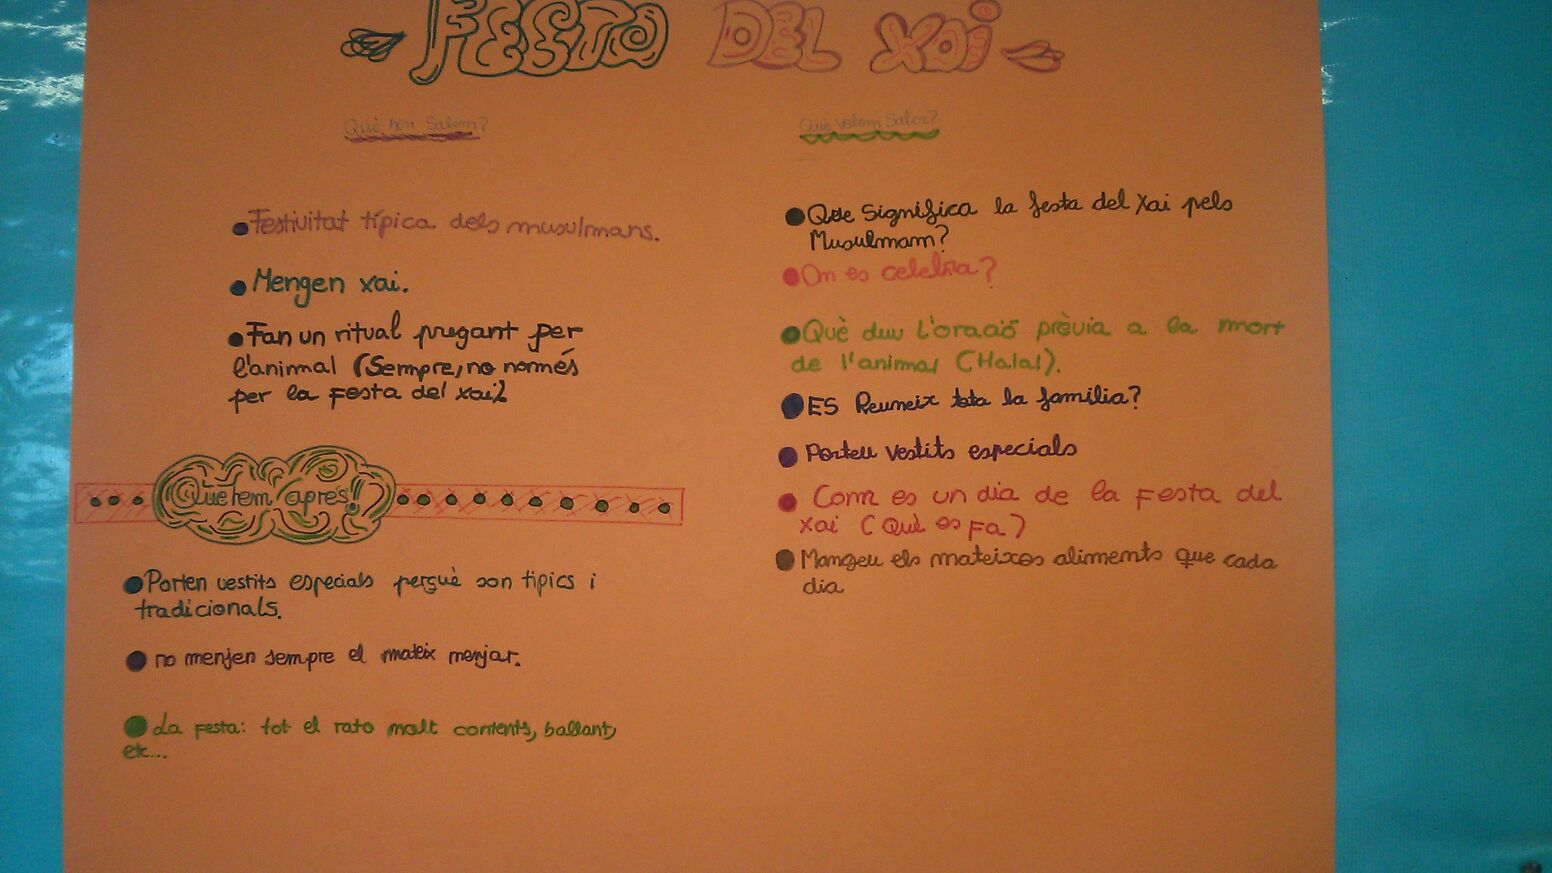 FESTA DEL XAI
Què hem Sabem?
• Festivitat típica dels musulmans.
• Mengen xai.
• Fan un ritual pregant per
l'animal (Sempre, no només
per la Festa del xai)
Que hem après!!?
• Porten vestits especials perquè son típics i
tradicionals.
• no menjen sempre el mateix menjar.
• La festa: tot el rato molt contents, ballant,
etc...
Què Volem Saber?
• Que significa la festa del xai pels
Musulmam?
• On es celebra?
• Què diu L'oració prèvia a la mort
de l'animal (Halal).
• ES Reuneix tota la família?
• Porteu vestits especials
• Com es un dia de la Festa del
xai (Què es fa?)
• Mangeu els mateixos aliments que cada
dia